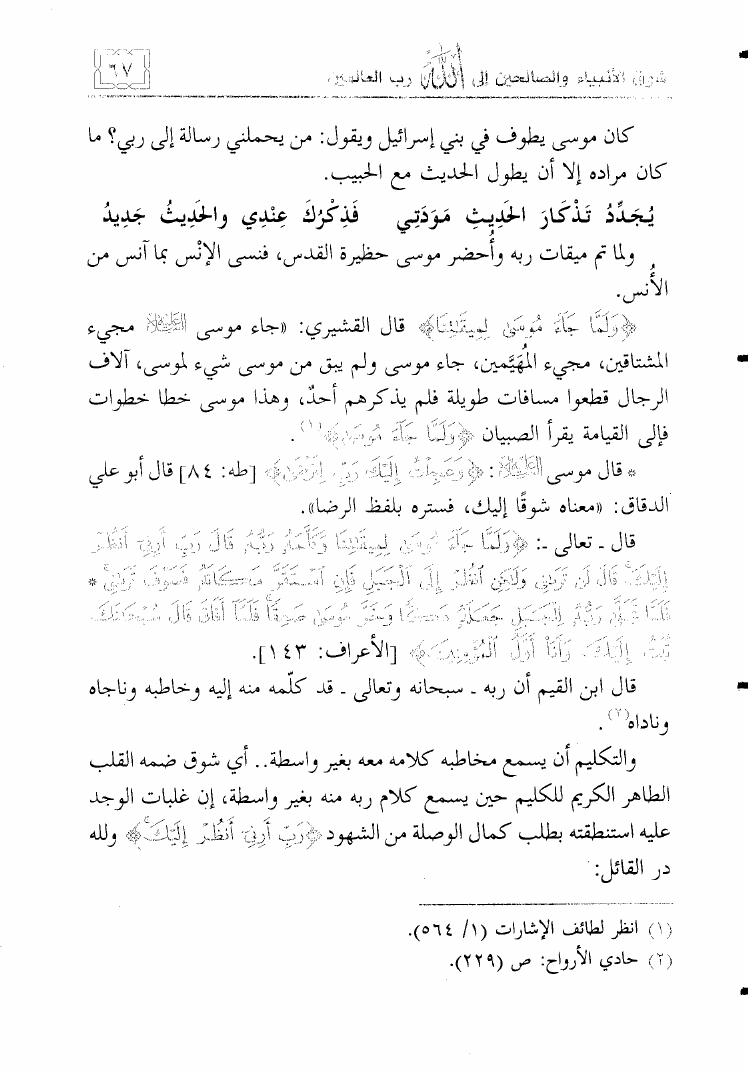 شوق الأنبياء والصالحين إلى الله رب العالمين
٦٧
كان موسى يطوف في بني إسرائيل ويقول: من يحملني رسالة إلى ربي؟ ما
كان مراده إلا أن يطول الحديث مع الحبيب.
يُجَدِّدُ تَذْكَارَ الحَدِيثِ مَوَدَتِي فَذِكْرُكَ عِنْدِي والحَدِيثُ جَدِيدُ
ولما تم ميقات ربه وأُحضر موسى حظيرة القدس، فنسى الإنْس بما آنس من
الأُنس.
﴿وَلَمَّا جَآءَ مُوسَىٰ لِمِيقَٰتِنَا﴾ قال القشيري: «جاء موسى عليه السلام مجيء
المشتاقين، مجيء المُهَيَّمين، جاء موسى ولم يبق من موسى شيء لموسى، آلاف
الرجال قطعوا مسافات طويلة فلم يذكرهم أحدٌ، وهذا موسى خطا خطوات
فإلى القيامة يقرأ الصبيان ﴿وَلَمَّا جَآءَ مُوسَىٰ﴾(١).
* قال موسى عليه السلام: ﴿وَعَجِلْتُ إِلَيْكَ رَبِّ لِتَرْضَىٰ﴾ [طه: ٨٤] قال أبو علي
الدقاق: «معناه شوقًا إليك، فستره بلفظ الرضا».
قال ـ تعالى ـ: ﴿وَلَمَّا جَآءَ مُوسَىٰ لِمِيقَٰتِنَا وَكَلَّمَهُۥ رَبُّهُۥ قَالَ رَبِّ أَرِنِىٓ أَنظُرْ
إِلَيْكَ ۚ قَالَ لَن تَرَىٰنِى وَلَٰكِنِ ٱنظُرْ إِلَى ٱلْجَبَلِ فَإِنِ ٱسْتَقَرَّ مَكَانَهُۥ فَسَوْفَ تَرَىٰنِى ۚ *
فَلَمَّا تَجَلَّىٰ رَبُّهُۥ لِلْجَبَلِ جَعَلَهُۥ دَكًّا وَخَرَّ مُوسَىٰ صَعِقًا ۚ فَلَمَّآ أَفَاقَ قَالَ سُبْحَٰنَكَ
تُبْتُ إِلَيْكَ وَأَنَا۠ أَوَّلُ ٱلْمُؤْمِنِينَ﴾ [الأعراف: ١٤٣].
قال ابن القيم أن ربه ـ سبحانه وتعالى ـ قد كلّمه منه إليه وخاطبه وناجاه
وناداه(٢).
والتكليم أن يسمع مخاطبه كلامه معه بغير واسطة.. أي شوق ضمه القلب
الطاهر الكريم للكليم حين يسمع كلام ربه منه بغير واسطة، إن غلبات الوجد
عليه استنطقته بطلب كمال الوصلة من الشهود ﴿رَبِّ أَرِنِىٓ أَنظُرْ إِلَيْكَ ۚ﴾ ولله
در القائل:
(١) انظر لطائف الإشارات (١/ ٥٦٤).
(٢) حادي الأرواح: ص (٢٢٩).